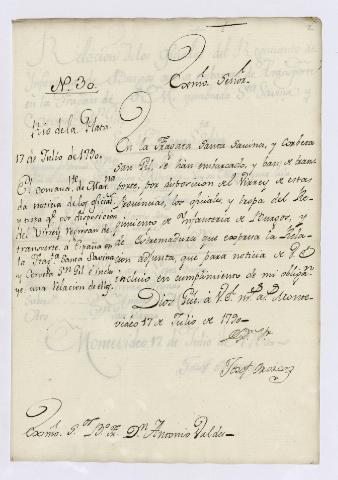 2
Nº. 30.
Exmo. Señor.
Rio de la Plata
17 de Julio de 1790.
El Comandte. de Marina
da noticia de los oficiales
y tropa qe. por disposicion
del Virrey regresan de
transporte à España en
la Fragta. Santa Savina
y Corveta Sn. Pîo è incluye
una relacion de ellos.
En la Fragata Santa Savina, y Corbeta
San Pîo, se han embarcado, y van de trans
porte, por disposicion del Virrey de estas
Provincias, los oficiales, y tropa del Re-
gimiento de Infanteria de Burgos, y
de Extremadura que expresa la Rela-
cion adjunta, que para noticia de V.E.
incluio en cumplimiento de mi obligon.
Dios Gue. a V.E. ms. as. Monte-
video 17 de Julio de 1790-
Exmo. Sor. Bo. Fr. Dn. Antonio Valdes-